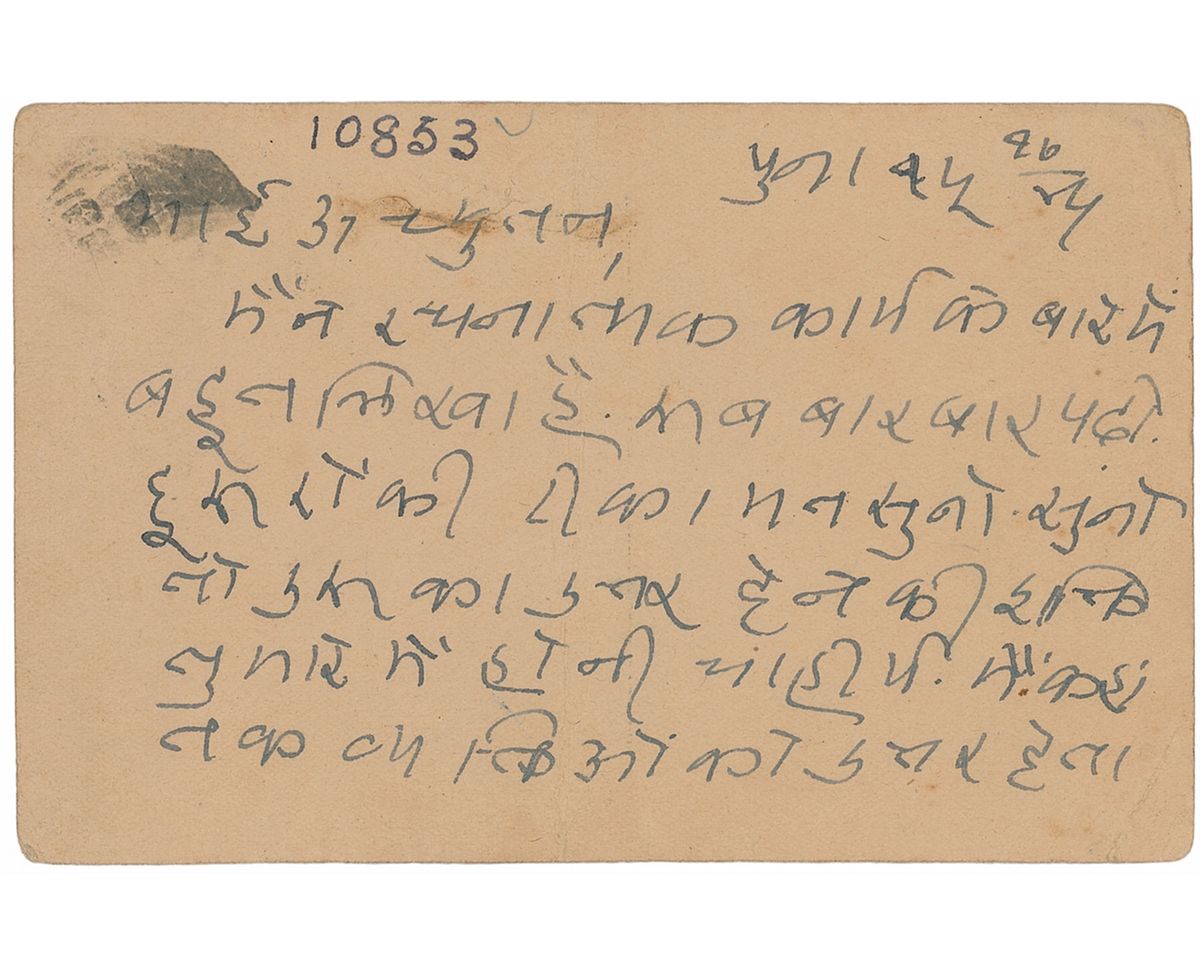 10853
पुना
भाई अच्युतन,
मैंने रचनात्मक कार्य के बारे में
बहूत लिखा है. सब बार बार पढो.
दूसरों की टीका मत सुनो. सुनो
तो उसका उत्तर देने की शक्ति
तुमारे में होनी चाहीये. मैं कहां
तक व्यक्तिओं को उत्तर देता